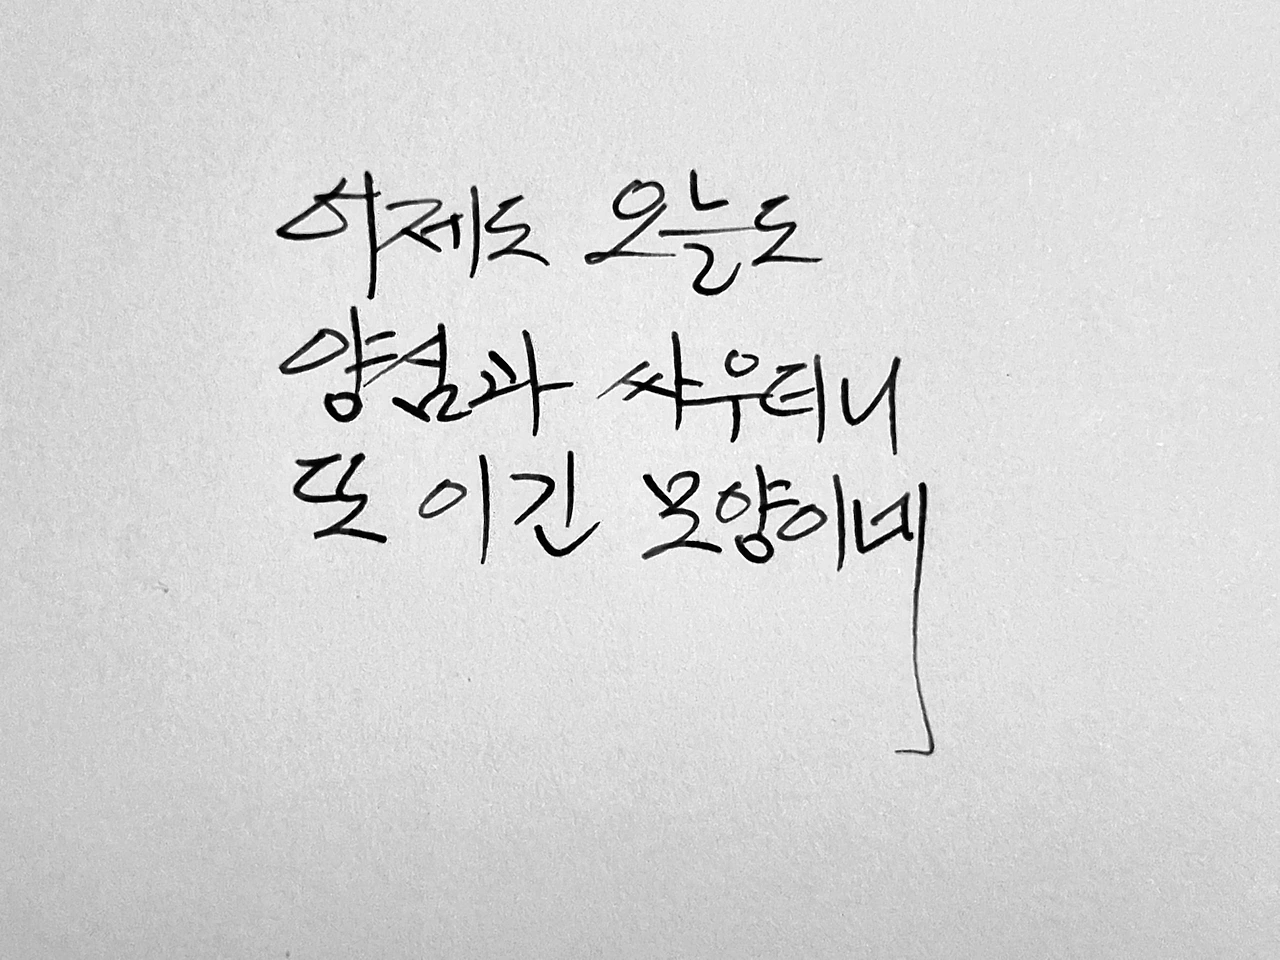 어제도 오늘도
양심과 싸우더니
또 이긴 모양이네